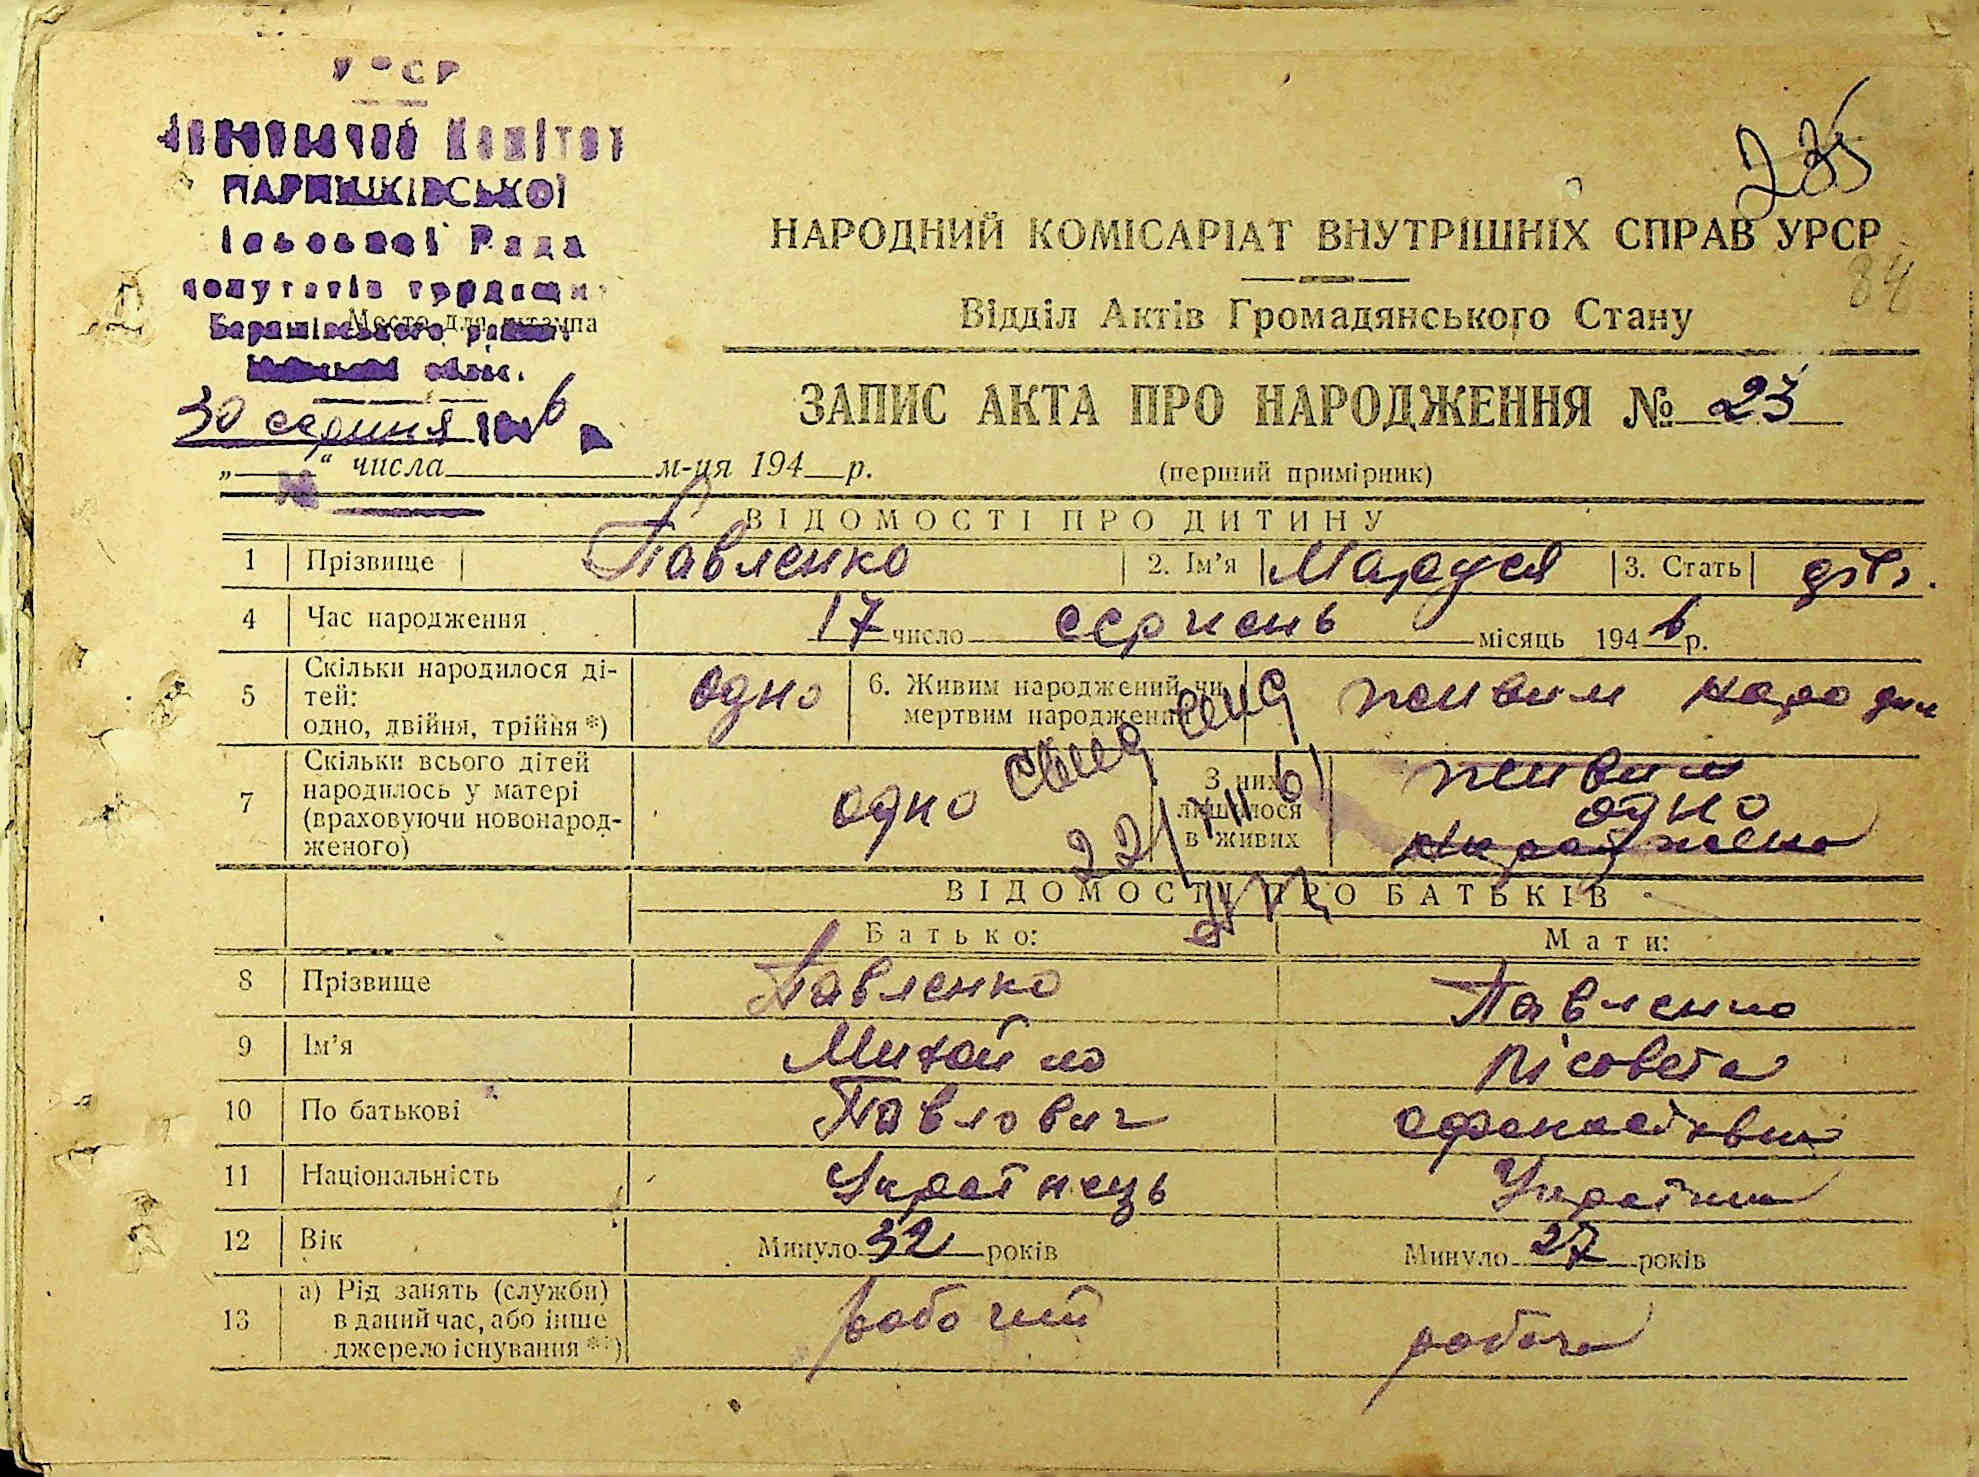 УРСР
Виконавчий Комітет
ПАРИШКІВСЬКОЇ
Сільської Ради
депутатів трудящих
Баришівського району
Київської облас.
Место для штампа
30 серпня 1946
235
84
НАРОДНИЙ КОМІСАРІАТ ВНУТРІШНІХ СПРАВ УРСР
Відділ Актів Громадянського Стану
ЗАПИС АКТА ПРО НАРОДЖЕННЯ № 23
„ “ числа м-ця 194 р.
(перший примірник)
ВІДОМОСТІ ПРО ДИТИНУ
1 Прізвище Павленко 2. Ім’я Маруся 3. Стать дів.
4 Час народження 17 число серпень місяць 1946 р.
5 Скільки народилося ді-
тей:
одно, двійня, трійня *) одно 6. Живим народжений чи
мертвим народжений живим народж
7 Скільки всього дітей
народилось у матері
(враховуючи новонарод-
женого) одно З них
лишилося
в живих живим
одно
22/VII 61
ВІДОМОСТІ ПРО БАТЬКІВ
Батько: Мати:
8 Прізвище Павленко Павленко
9 Ім’я Михайло Лісовета
10 По батькові Павлович
11 Національність Українець Україн
12 Вік Минуло 32 років Минуло 27 років
13 а) Рід занять (служби)
в даний час, або інше
джерело існування **) рабочий робоча